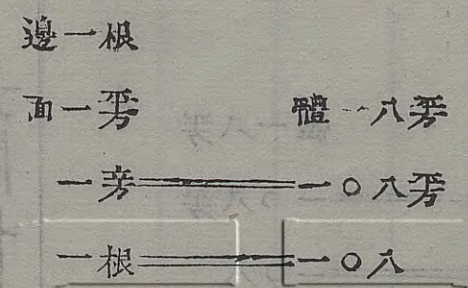 邊一根
面一平方 體一八平方
一立方══一〇八平方
一根══一〇八